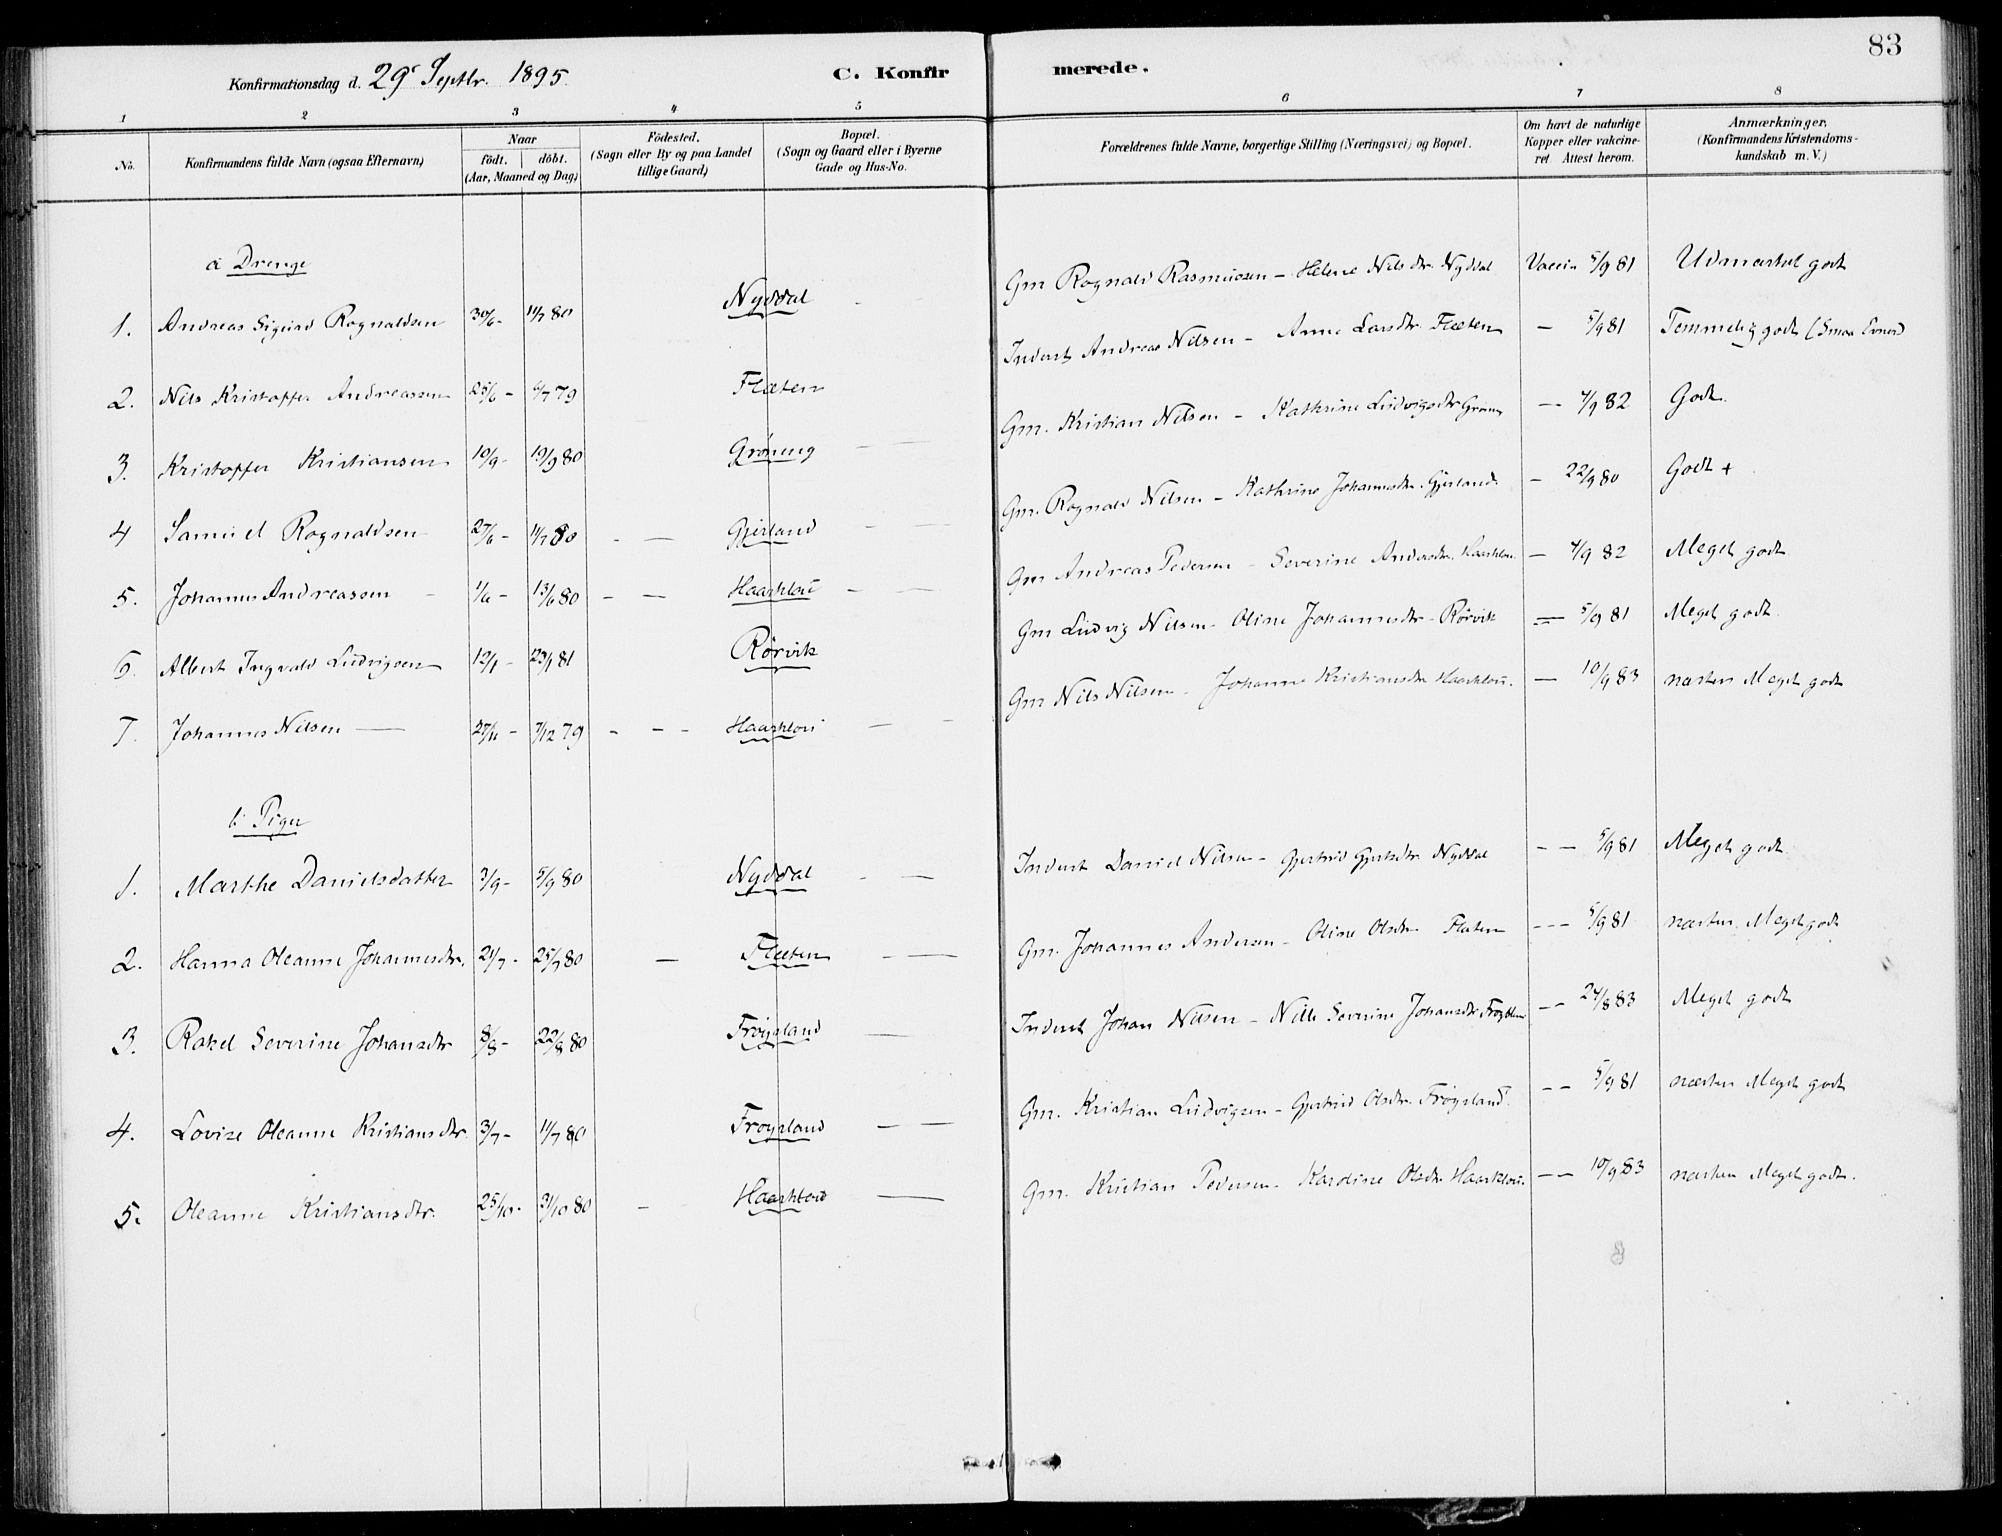 83
Konfirmationsdag d. 29de Septbr. 1895.
C. Konfirmerede.
1 2 3 4 5 6 7 8
No.
Konfirmandens fulde Navn (ogsaa Efternavn)
Naar
födt. döbt.
(Aar, Maaned og Dag)
Födested.
(Sogn eller By og paa Landet
tillige Gaard)
Bopæl.
(Sogn og Gaard eller i Byerne
Gade og Hus-No.
Forældrenes fulde Navne, borgerlige Stilling (Næringsvei) og Bopæl.
Om havt de naturlige
Kopper eller vakcine-
ret. Attest herom.
Anmærkninger.
(Konfirmandens Kristendoms-
kundskab m. V.)
a Drenge
1. Andreas Sigurd Rognaldsen 30/6- 11/7 80 Nyddal Gm Rognald Rasmussen - Helene Nilsdtr. Nyddal Vaccin 5/9 81 Udmærket godt
2. Nils Kristoffer Andreassen 25/6- 6/7 79 Flæten Inderst Andreas Nilsen - Anne Larsdtr. Flæten - 5/9 81 Temmelig godt (Smaa Evner)
3. Kristoffer Kristiansen 10/9- 19/9 80 Gröning Gm. Kristian Nilsen - Kathrine Ludvigsdtr Gröning - 4/9 82 Godt.
4 Samuel Rognaldsen 27/6- 11/7 80 - - Gjerland - - Gm. Rognald Nilsen - Kathrine Johannesdtr. Gjerland. - 22/9 80 Godt +
5. Johannes Andreassen - 1/6- 13/6 80 - - Haarklou - - Gm Andreas Pedersen - Severine Andersdtr. Haarklou. - 4/9 82 Meget godt
6. Albert Ingvald Ludvigsen 12/1- 23/1 81 Rørvik Gm Ludvig Nilsen - Oline Johannesdtr - Rørvik - 5/9 81 Meget godt
7. Johannes Nilsen - 27/11- 7/12 79 - - - Haarklou - - Gm Nils Nilsen - Johanne Kristiansdtr Haarklou. - 10/9 83 næsten Meget godt
b. Piger
1. Marthe Danielsdatter 3/9- 5/9 80 Nyddal - - Inderst Daniel Nilsen - Gjertrud Gjertsdtr Nyddal - - 5/9 81 Meget godt
2. Hanna Oleanne Johannesdtr. 21/7- 25/7 80 - Flæten - - Gm. Johannes Andersen - Oline Olsdtr. Flæten - - - 5/9 81 næsten Meget godt
3. Rakel Severine Johansdtr 8/8- 22/8 80 Fröysland - Inderst Johan Nilsen - Nille Severine Johansdtr. - - 24/8 83 Meget godt
4. Lovise Oleanne Kristiansdtr. 3/7- 11/7 80 Fröysland - - Gm. Kristian Ludvigsen - Gjertrud Olsdtr. Fröysland. - - 5/9 81 næsten Meget godt
5. Oleanne Kristiansdtr. 25/10- 31/10 80 - Haarklou - Gm. Kristian Pedersen - Karoline Olsdtr. Haarklou. - - 10/9 83 næsten Meget godt.